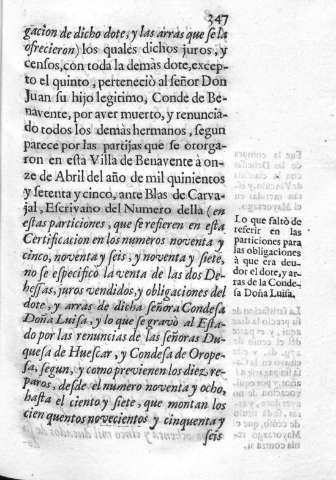 347
gacion de dicho dote, y las arras que se la
ofrecieron) los quales dichos juros, y
censos, con toda la demàs dote, excep-
to el quinto, perteneciò al señor Don
Juan su hijo legitimo, Conde de Be-
navente, por aver muerto, y renuncia-
do todos los demàs hermanos, segun
parece por las partijas que se otorga-
ron en esta Villa de Benavente à on-
ze de Abril del año de mil quinientos
y setenta y cinco, ante Blas de Carva-
jal, Escrivano del Numero della (en
estas particiones, que se refieren en esta
Certificacion en los numeros noventa y
cinco, noventa y seis, y noventa y siete,
no se especificò la venta de las dos De-
hessas, juros vendidos, y obligaciones del
dote, y arras de dicha señora Condesa
Doña Luisa, y lo que se gravò al Esta-
do por las renuncias de las señoras Du-
quesa de Huescar, y Condesa de Orope-
sa, segun, y como previenen los diez re-
paros, desde el numero noventa y ocho,
hasta el ciento y siete, que montan los
cien quentos novecientos y cinquenta y
seis
Lo que faltò de
referir en las
particiones para
las obligaciones
à que era deu-
dor el dote, y ar-
ras de la Conde-
sa Doña Luisa.